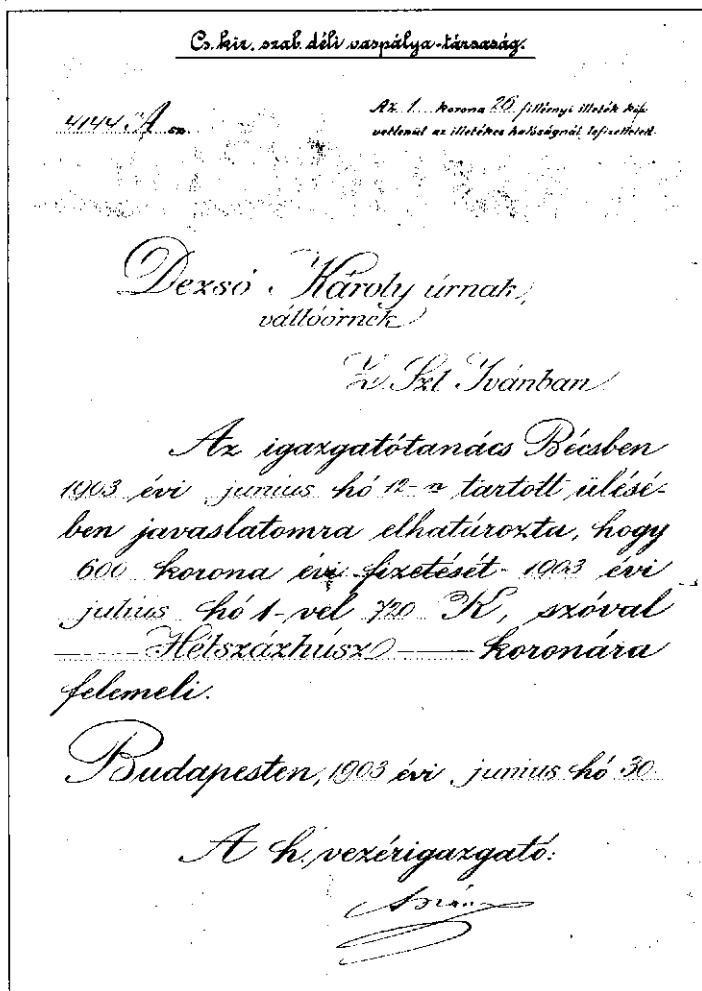 Cs. kir. szab. déli vaspálya-társaság.
4144 A sz.
Az 1 korona 26 fillérnyi illeték köz-
vetlenül az illetékes hatóságnál lefizettetett.
Dezsó Károly úrnak,
váltóőrnek
Z. Szt Ivánban
Az igazgatótanács Bécsben
1903 évi junius hó 12-n tartott ülésé-
ben javaslatomra elhatározta, hogy
600 korona évi fizetését 1903 évi
julius hó 1-vel 720 K, szóval
Hétszázhúsz koronára
felemeli.
Budapesten, 1903 évi junius hó 30
A h. vezérigazgató: